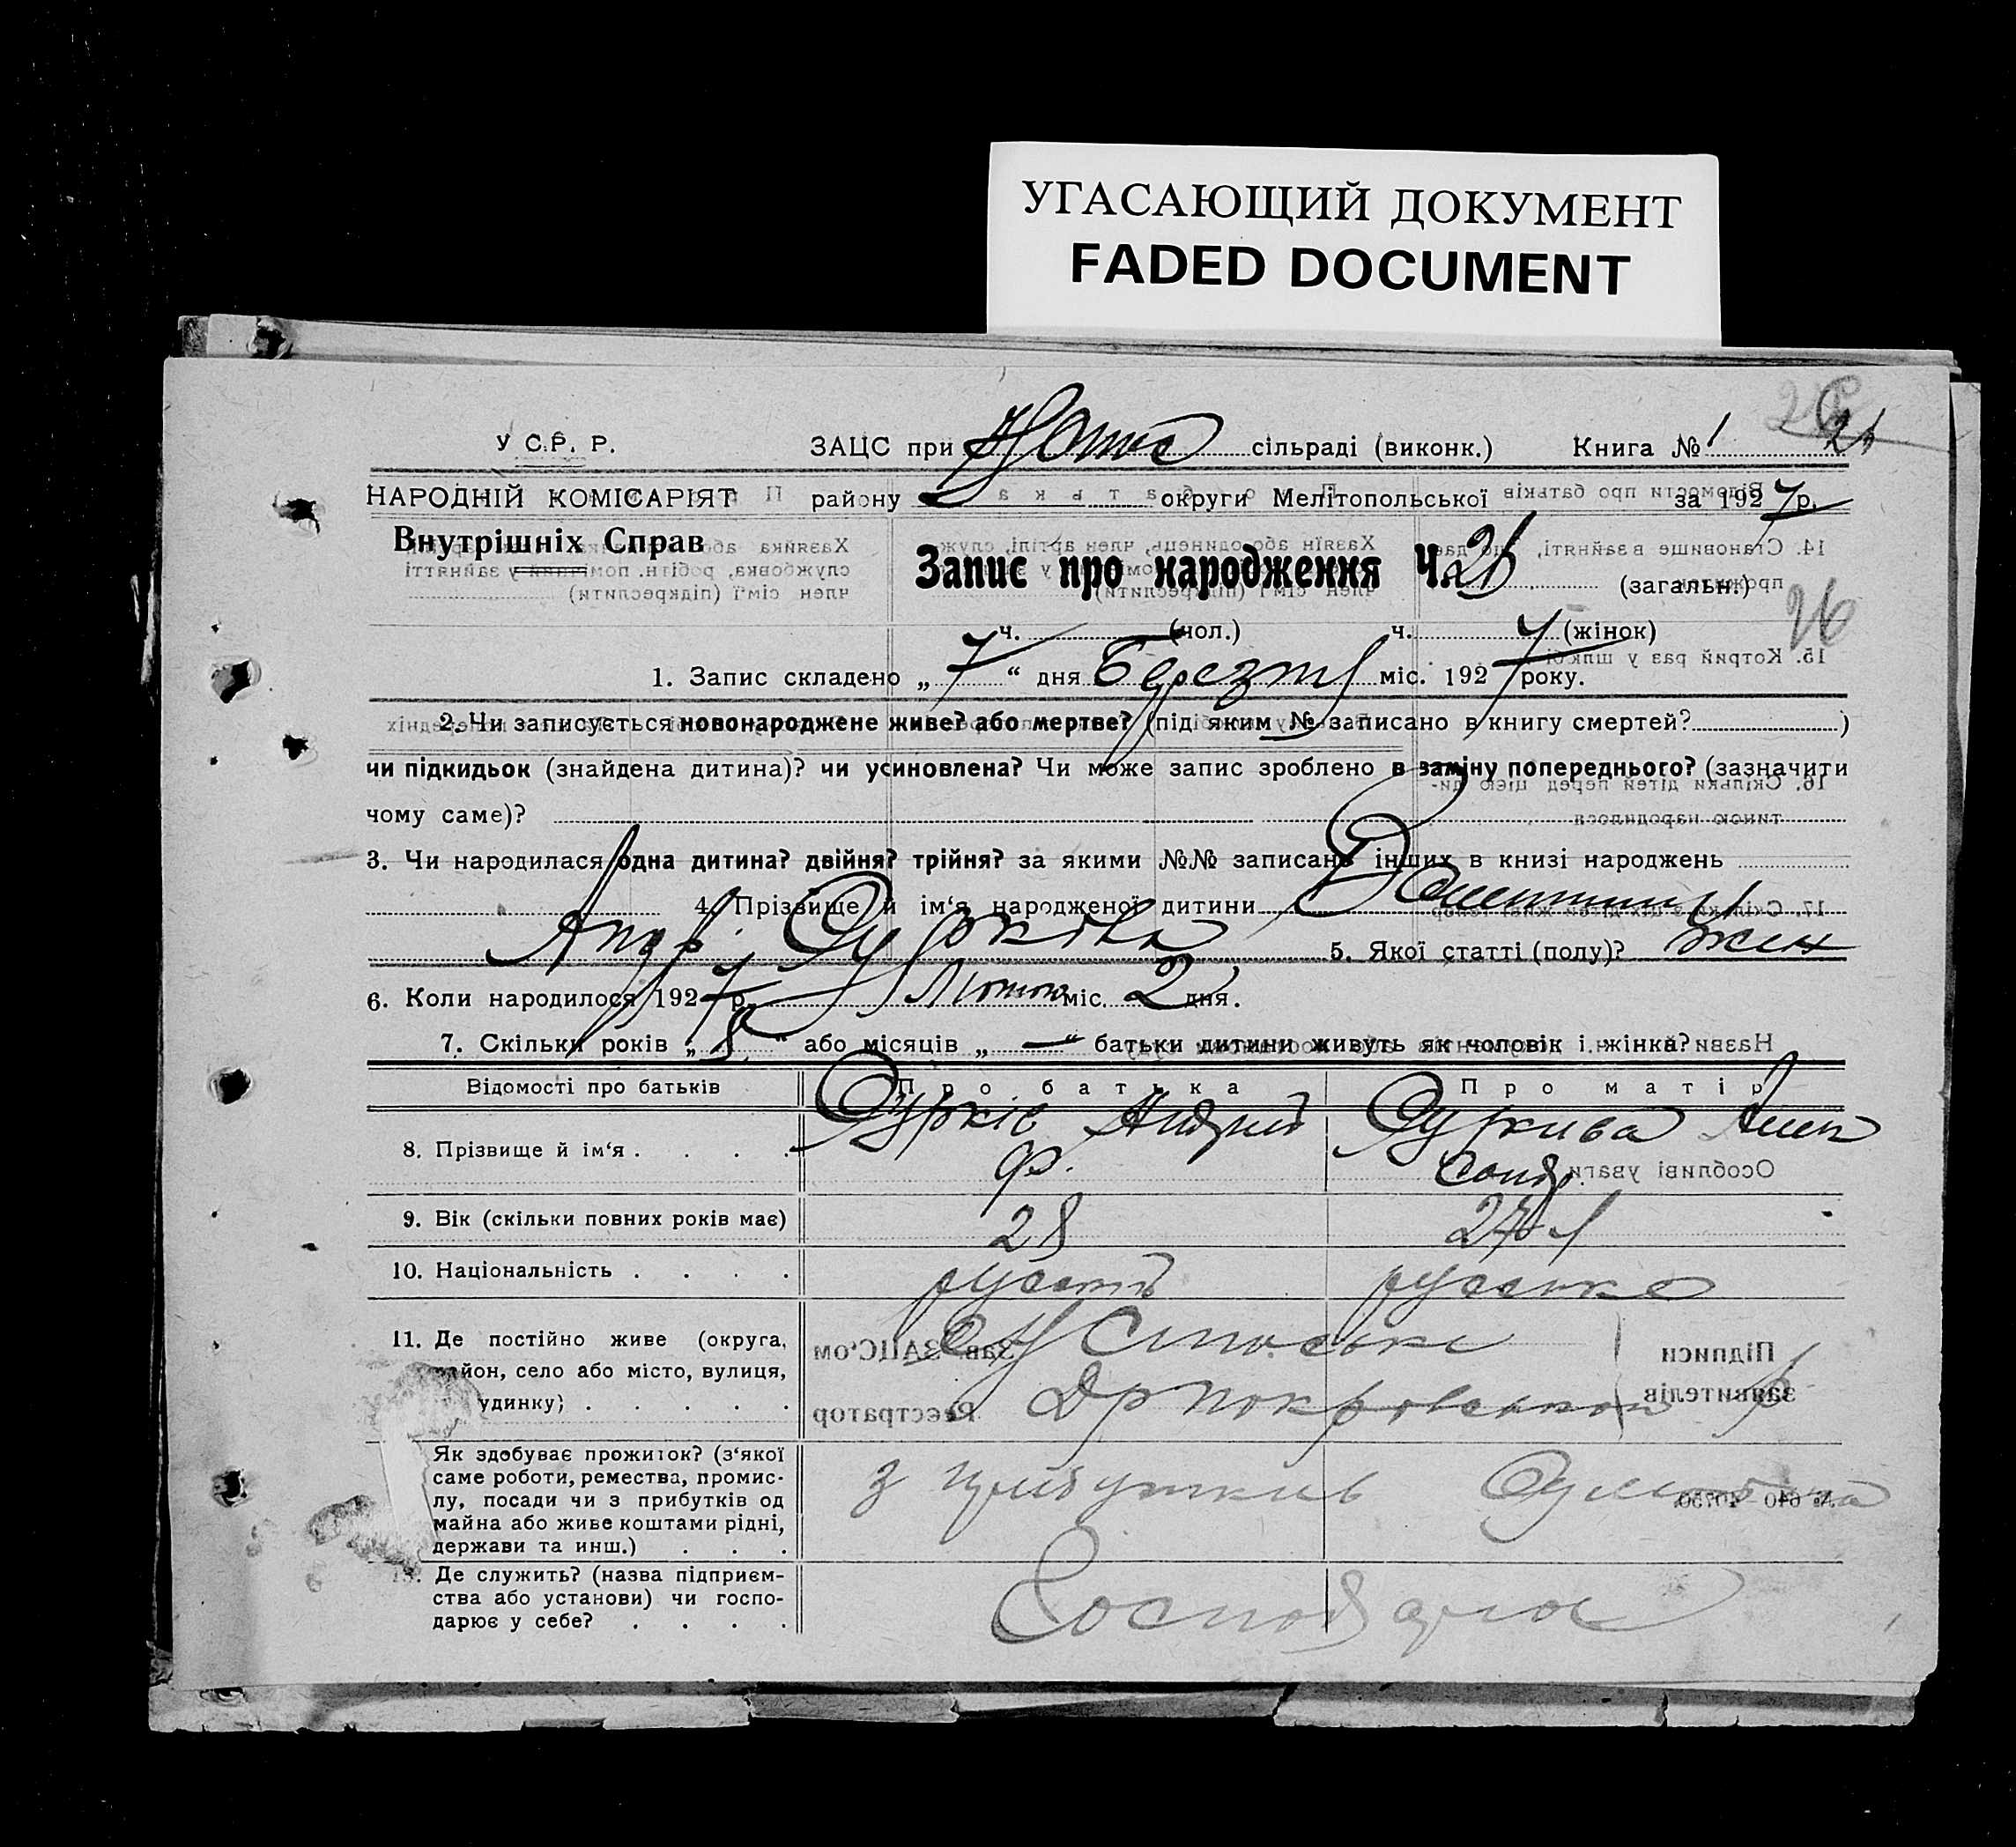 УГАСАЮЩИЙ ДОКУМЕНТ
FADED DOCUMENT
26
У С. Р. Р. ЗАЦС при сільраді (виконк.) Книга № 1 26
НАРОДНІЙ КОМІСАРІЯТ району округи Мелітопольської за 1927 р.
Внутрішніх Справ
Запис про народження Ч. 26 (загальн.)
26
ч. (чол.) ч. 7 (жінок)
1. Запис складено „ 7 “ дня Березня міс. 1927 року.
2. Чи записується новонароджене живе? або мертве? (під яким № записано в книгу смертей? )
чи підкидьок (знайдена дитина)? чи усиновлена? Чи може запис зроблено в заміну попереднього? (зазначити
чому саме)?
3. Чи народилася одна дитина? двійня? трійня? за якими №№ записано інших в книзі народжень
4. Прізвище й ім‘я народженої дитини Валентина
Андр. 5. Якої статті (полу)? жен
6. Коли народилося 1927 р. Лютого міс. 2 дня.
7. Скільки років „ 8 “ або місяців „ — “ батьки дитини живуть як чоловік і жінка?
Відомості про батьків Про батька Про матір
8. Прізвище й ім‘я . . . . Андрий Алек
Ф. санд.
9. Вік (скільки повних років має) 28 27
10. Національність . . . . русский русска
11. Де постійно живе (округа,
район, село або місто, вулиця,
будинку) . . . . . Покровской
Як здобуває прожиток? (з‘якої
саме роботи, ремества, промис-
лу, посади чи з прибутків од
майна або живе коштами рідні,
держави та инш.) . . .
з прибутків
13. Де служить? (назва підприєм-
ства або установи) чи госпо-
дарює у себе? . . . .